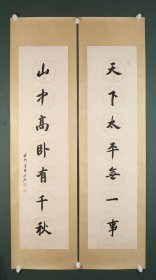 天下太平無一事
山中高卧有千秋